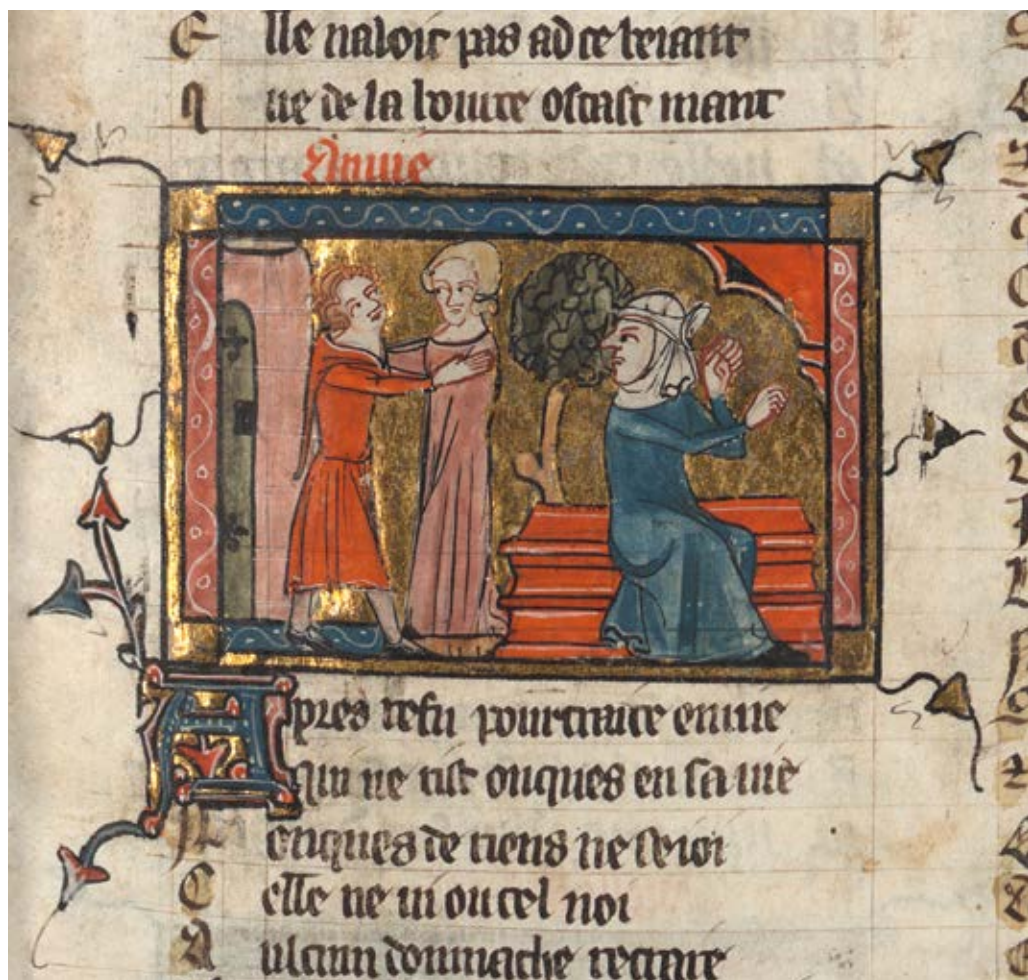 Elle naloit pas ad ce beiant
Que de la bource ostast niant
Enuie
Apres refu pourtraite enuie
Qui ne rist onques en sa uie
Nonques de riens ne seioi
Celle ne ui ou cel noi
Aulcun dommache retraire